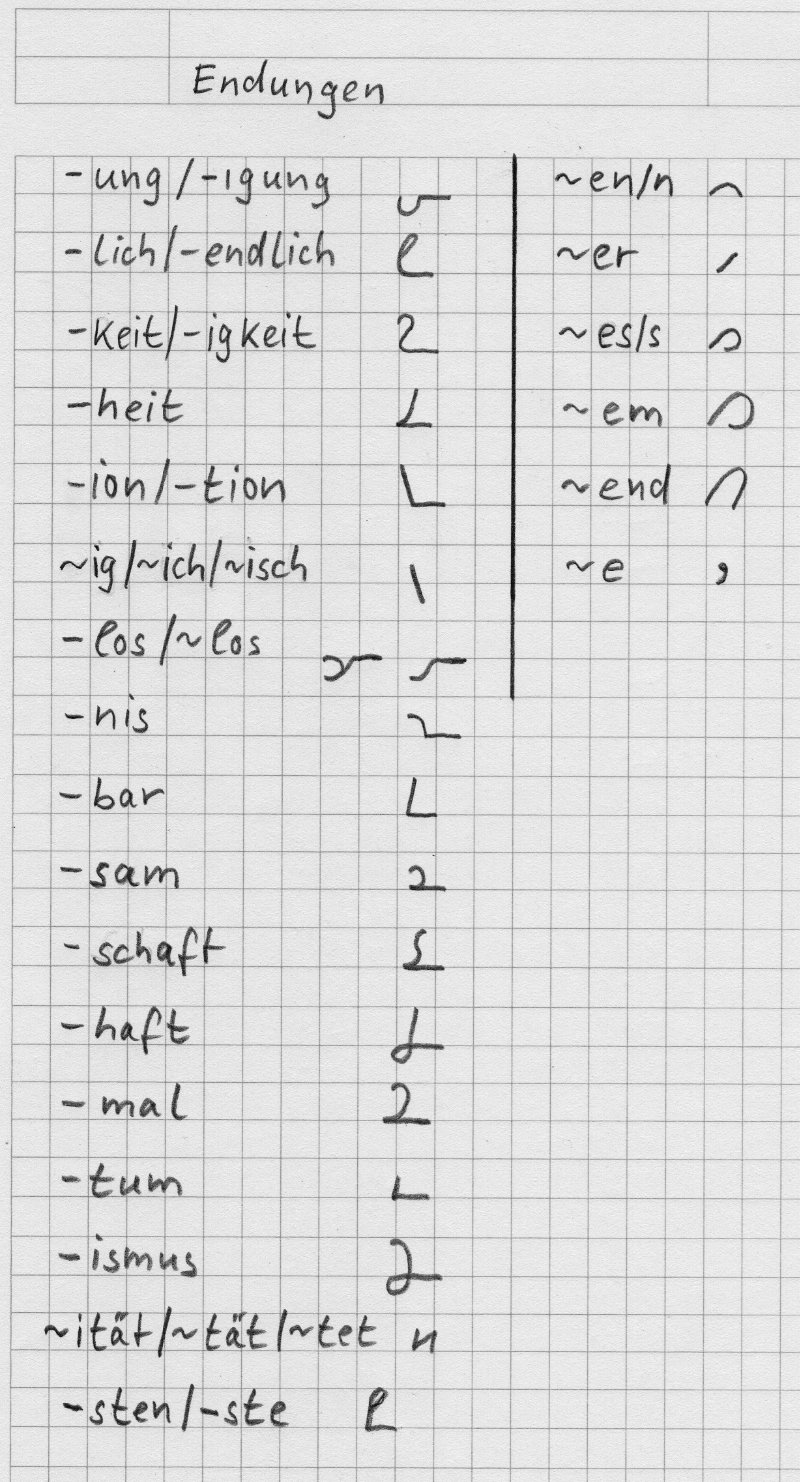 Endungen
-ung/-igung
-lich/-endlich
-keit/-igkeit
-heit
-ion/-tion
~ig/~ich/~isch
-los/~los
-nis
-bar
-sam
-schaft
-haft
-mal
-tum
-ismus
~ität/~tät/~tet
-sten/-ste
~en/n
~er
~es/s
~em
~end
~e